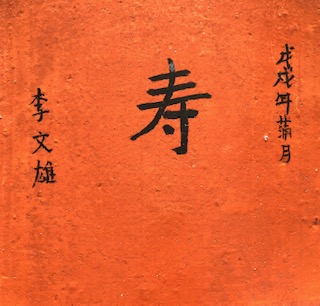 戊戌年蒲月
寿
李文雄